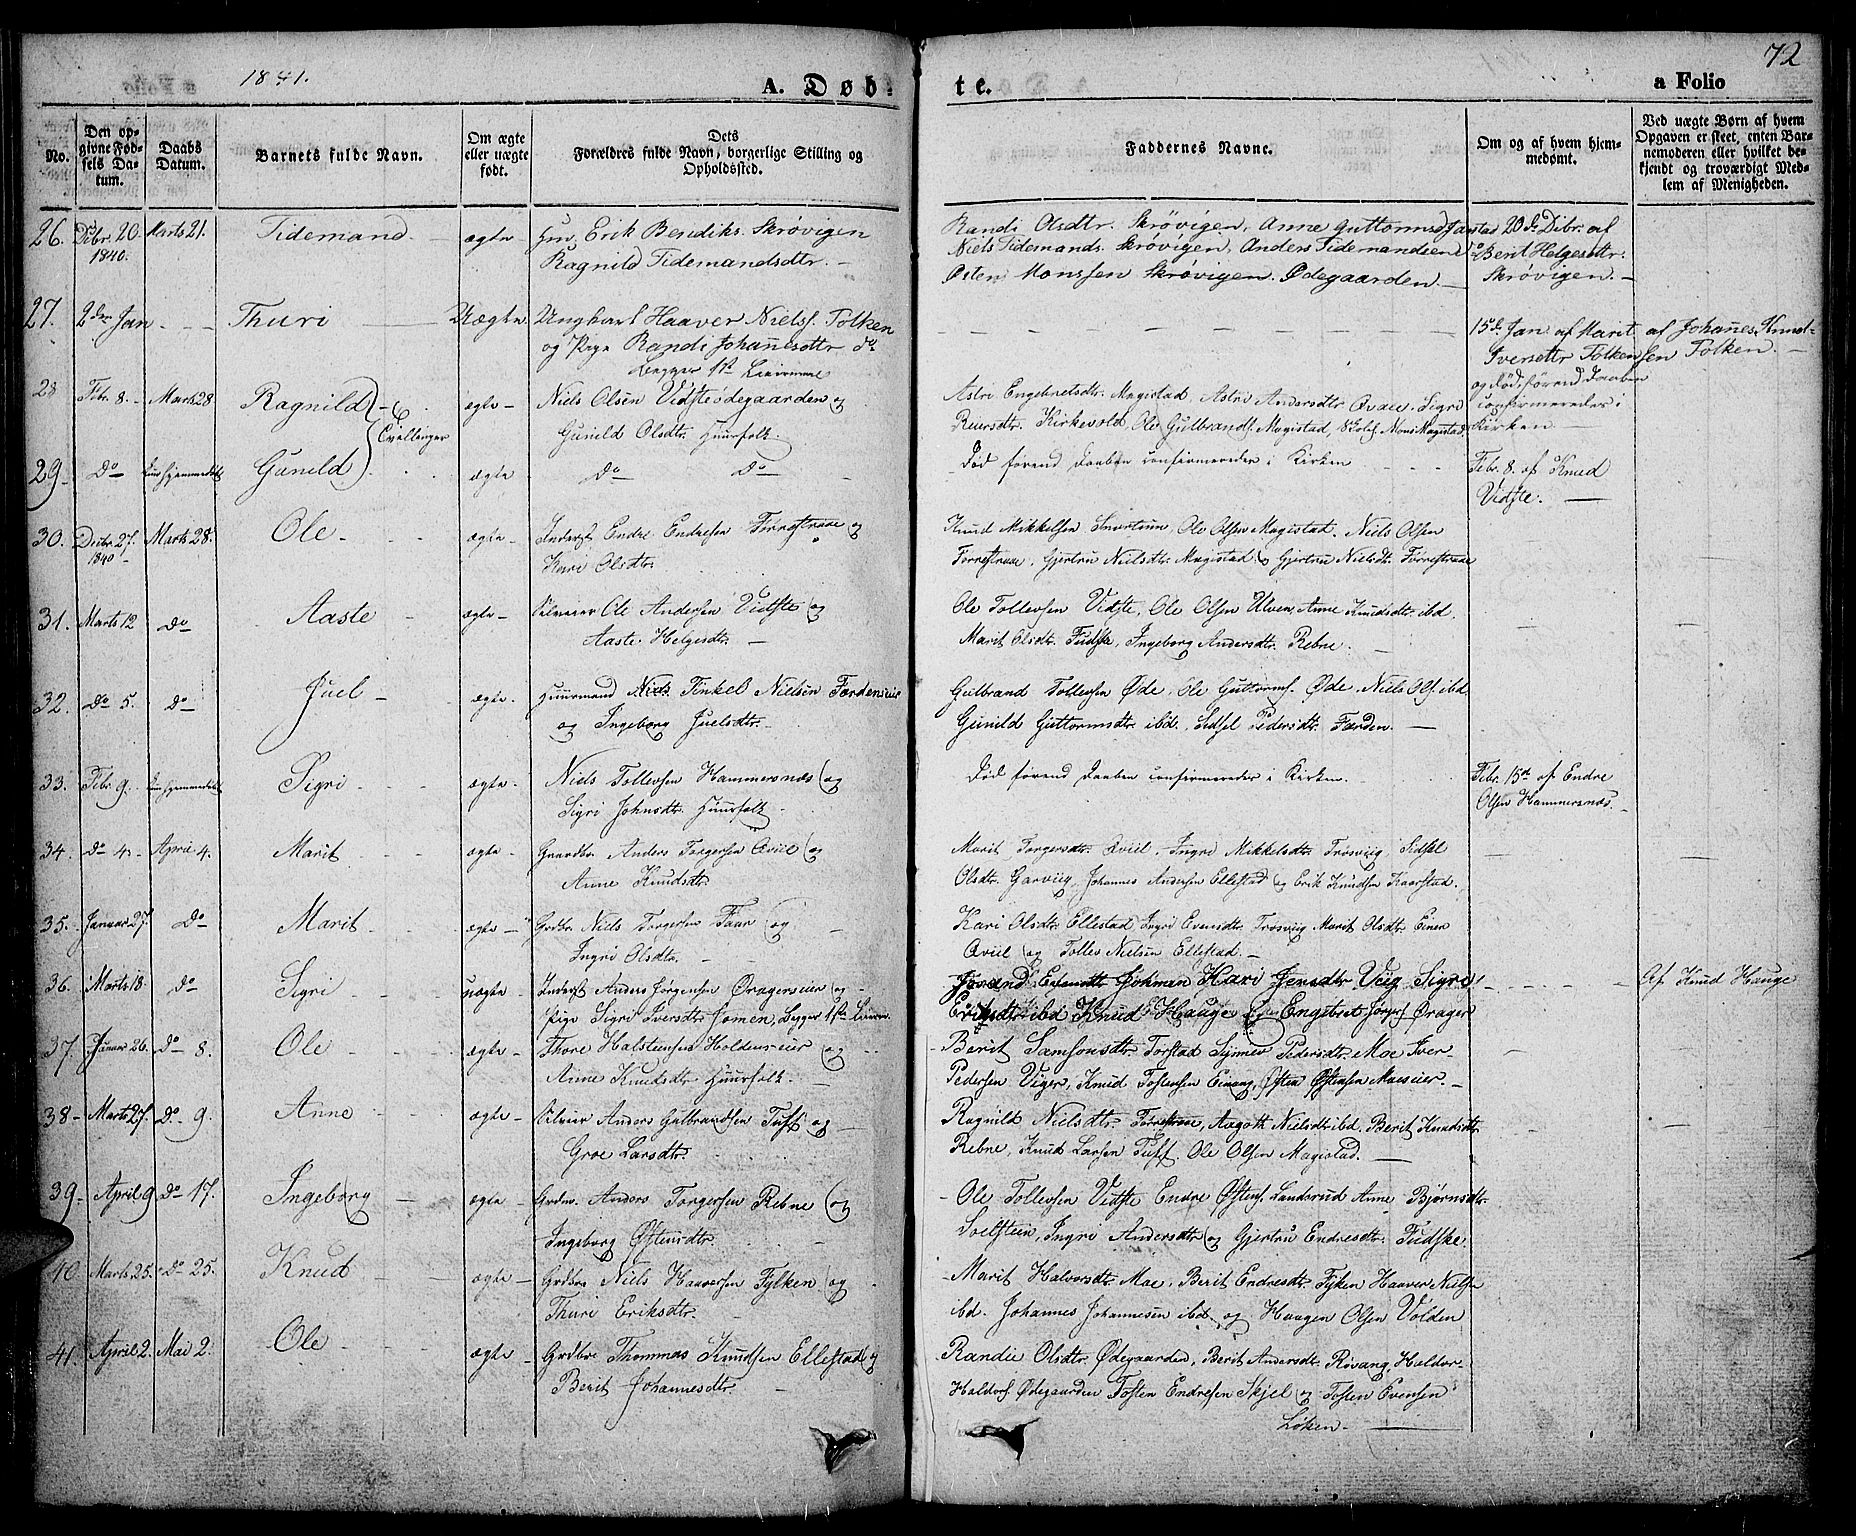 1841.
A. Døb-
te.
a Folio
72
No.
Den op-
givne Fød-
sels Da-
tum.
Daabs
Datum.
Barnets fulde Navn.
Om ægte
eller uægte
født.
Dets
Forældres fulde Navn, borgerlige Stilling og
Opholdssted.
Faddernes Navne.
Om og af hvem hjem-
medømt.
Ved uægte Børn af hvem
Opgaven er skeet, enten Bar-
nemoderen eller hvilket be-
kjendt og troværdigt Med-
lem af Menigheden.
26. Dcbr. 20. Marts 21. Tidemand. ægte Erik Bendiks. Skrøvigen
1840. Ragnild Tidemandsdtr.
Randi Olsdtr. Skrøvigen, Anne Guttormsd 20de Dcbr. af
Niels Tidemands. Skrøvigen, Anders Tidemandsens Berit Helgesdtr.
Østen Monssen Skrøvigen. Ødegaarden. Skrøvigen.
27. 2den Jan Thuri Uægte. Ungkarl Haaver Niels. Tolken
og Pige Randi Johannesdtr do
Begges 1ste Leiermaal
15de Jan af Marit af Johanes Knud-
Iversdtr Tolken sen Tolken.
28 Febr. 8. Marts 28 Ragnild Tvillinger ægte Niels Olsen Vidsteødegaarden og
Gunild Olsdtr. Huusfolk.
Astri Engebretsdtr. Magistad, Astri Andersdtr. Qvale. Sigri
Reiersdtr. Kirkevold, Ole Gulbrands. Magistad, Mons Magistad
og død, førend Daaben
confirmeredes i
Kirken
29. Do Kun hjemmedøbt Gunild ægte Do Do
Død førend Daaben confirmeredes i Kirken
Febr. 8. af Knud
Vidste.
30. Dcbr. 27. Marts 28. Ole ægte Inderst Endre Endresen Førrestraae og
1840 Kari Olsdtr.
Knud Mikkelsen Snortum, Ole Olsen Magistad. Niels Olsen
Førrestraae, Gjertru Nielsdtr. Magistad og Gjertru Nielsdt. Førrestraae
31. Marts 12 do Aaste ægte Ole Andersen Vidste og
Aaste Helgesdtr.
Ole Tollevsen Vidste, Ole Olsen Ulven, Anne Knudsdtr. ibd.
Marit Olsdtr. Fudske, Ingeborg Andersdtr. Rebne.
32. do 5. do Juel ægte. Huusmand Niels Tinkel Nielsen Færdenseie
og Ingeborg Juelsdtr.
Gulbrand Tollevsen Øde, Ole Guttorms. Øde, Niels Ols. ibd.
Gunild Guttormsdtr. ibd., Sidsel Pedersdtr. Færden.
33. Febr. 9. Kun hjemmedøbt Sigri ægte. Niels Tollevsen Hammersnæs og
Sigri Johnsdtr. Huusfolk
Død førend Daaben confirmeredes i Kirken.
Febr. 15de af Endre
Olsen Hammersnæs.
34. do 4. April 4. Marit ægte Gaardbr. Anders Torgersen Qviil og
Anne Knudsdtr.
Marit Torgersdtr. Qviil, Ingri Mikkelsdtr. Trøsviig, Sidsel
Olsdtr. Garviig, Johannes Andersen Ellestad og Erik Knudsen Kaarstad.
35. Januar 27. do Marit ægte Grdbr. Niels Torgersen Faur og
Ingri Olsdtr.
Kari Olsdtr. Ellestad, Ingri Evensdtr. Trøsviig Marit Olsdtr.
Qviil og Tollev Nielsen Ellestad.
36. Marts 18. do Sigri uægte Inderst Anders Jørgensen Øragerseier og
Pige Sigri Iversdtr. Jomen, Begges 1ste Leierm.
Kari Jensdtr. Viig Sigri
Eriksdtr ibd Knud Hauge Engebret Jørgs. Ørager
Af Knud Hauge
37. Januar 26. do 8. Ole ægte Thore Halsteinsen Holdenseier og
Anne Knudsdtr Huusfolk.
Berit Samsonsdtr. Torstad Synnev Pedersdtr. Moe Iver
Pedersen Viger, Knud Tostensen Einang, Østen Østensen Moeseier.
38 Marts 27. do. 9. Anne ægte Anders Gulbrandsen Tuff og
Groe Larsdtr.
Ragnild Nielsdtr. Førrestraae, Aagoth Nielsdtr. ibd. Berit Knudsdtr.
Rebne, Knud Larsen Tuff. Ole Olsen Magistad.
39 April 9 do 17. Ingeborg ægte Anders Torgersen Rebne og
Ingeborg Østensdtr.
Ole Tollevsen Vidste Endre Østens. Landsrud Anne Bjørnsdtr.
Ingri Andersdtr og Gjertru Endresdtr. Fudske.
40 Marts 25. do 25. Knud ægte Grdbr. Niels Haaversen Fylken og
Thuri Eriksdtr.
Marit Halvorsdtr. Moe, Berit Endresdtr. Fyken Haaver Nielsen
ibd. Johannes Johannesen ibd. og Haagen Olsen Volden
41. April 2. Mai 2. Ole ægte Grdbr Thommas Knudsen Ellestad og
Berit Johannesdtr.
Randie Olsdtr. Ødegaarden, Berit Andersdtr. Røvang, Haldor
Haldors. Ødegaarden Tosten Endresen Skjel og Tosten Evensen
Løken.